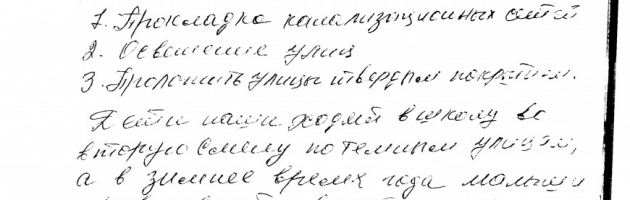 1. Прокладка канализационных сетей
2. Освещение улиц
3. Проложить улицы твердым покрытием.
Дети наши ходят в школу во
вторую смену по темным улицам,
а в зимнее время года малыши